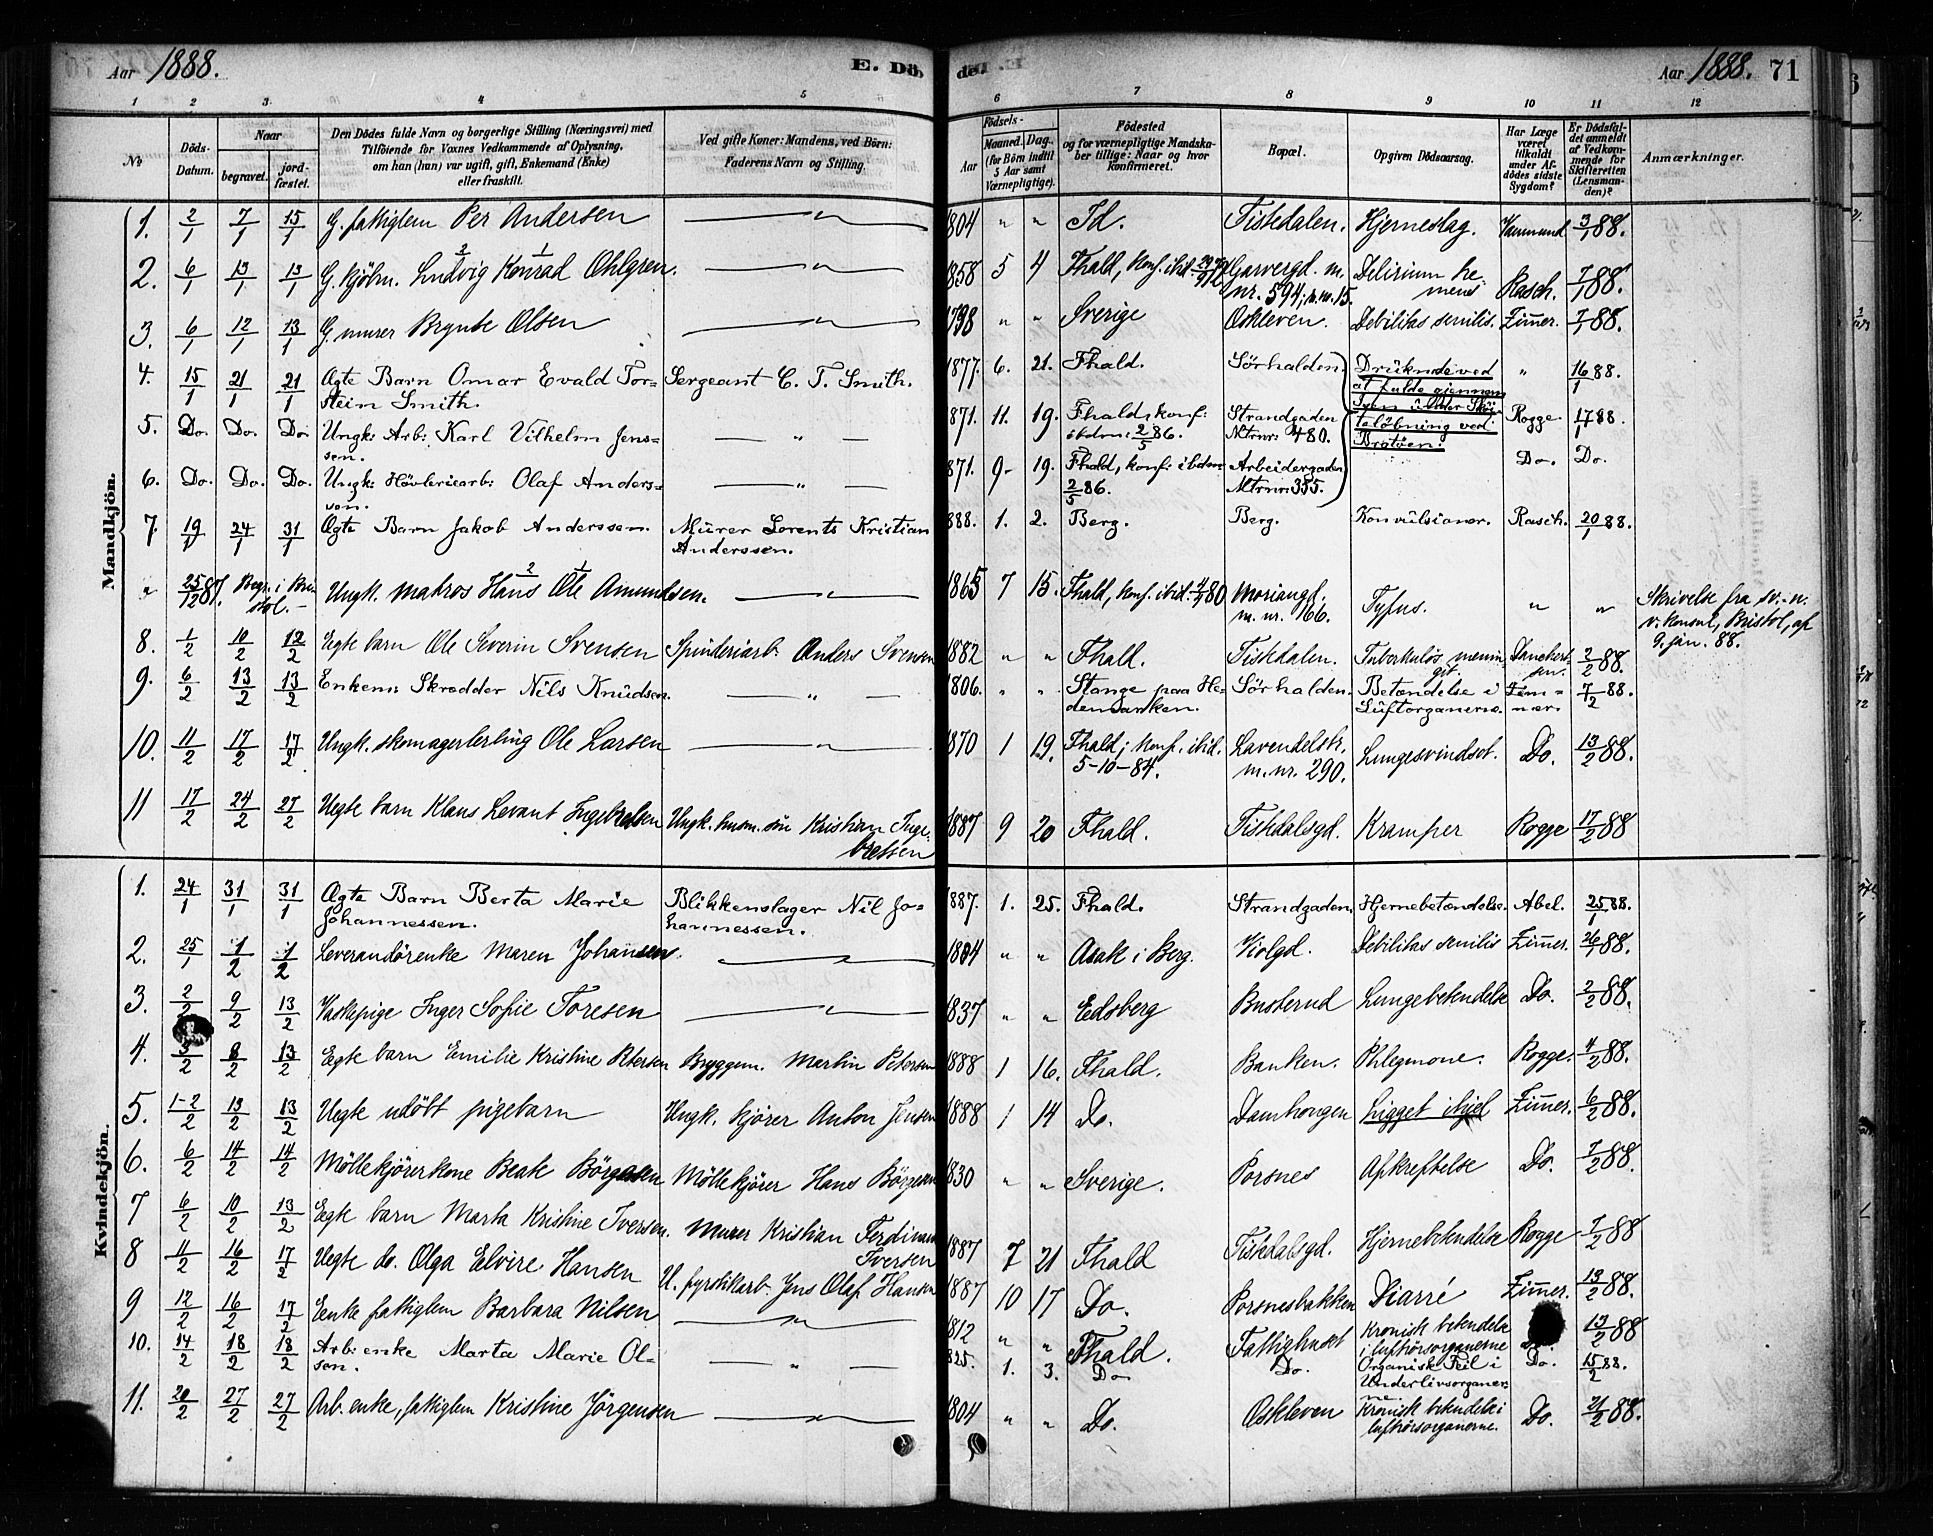 Aar 1888. E. Dö- de. Aar 1888. 71
1 2 3 4 5 6 7 8 9 10 11 12
No Döds-Datum. Naar begravet. jordfæstet. Den Dödes fulde Navn og borgerlige Stilling (Næringsvei) med Tilföiende for Voxnes Vedkommende af Oplysning, om han (hun) var ugift, gift, Enkemand (Enke) eller fraskilt. Ved gifte Koner: Mandens, ved Börn: Faderens Navn og Stilling. Födsels- Aar Maaned. Dag. (for Börn indtil 5 Aar samt Værnepligtige). Födested og for værnepligtige Mandskaber tillige: Naar og hvor Konfirmeret. Bopæl. Opgiven Dödsaarsag. Har Læge været tilkaldt under Afdödes sidste Sygdom? Er Dödsfaldet anmeldt af Vedkommende for Skifteretten (Lensmanden)? Anmærkninger.
Mandkjön.
1. 2/1 7/1 15/1 G. fattiglem Per Andersen — " — 1804 " " Id. Tistedalen. Hjerneslag. 3/1 88.
2. 6/1 13/1 13/1 G. kjöbm. Ludvig Konrad Ohlgren. — " — 1858 5 4 Fhald, konf. ibid. Garvergd. m.
nr. 594; Delirium tremens Rasch. 7/1 88.
3. 6/1 12/1 13/1 G. murer Brynte Olsen — " — 1798 " " Sverige Oskleven. Debilitas senilis. Zimer. 7/1 88.
4. 15/1 21/1 21/1 Ægte Barn Omar Evald Tor=
stein Smith. Sergeant C. T. Smith. 1877. 6. 21. Fhald. Sörhalden. Druknede ved
at falde gjennem
Isen under Sköi-
telöbning ved
Bratöen. " 16/1 88.
5. Do. Do. Do. Ungk: Arb: Karl Vilhelm Jens=
sen. — " — 1871. 11. 19. Fhald, konf:
ibdm: 2/5 86. Strandgaden
Mtrnr: 480. Rogge 17/1 88.
6. Do. Do. Do. Ungk: Hövleriearb: Olaf Anders=
sen. — " — 1871. 9- 19. Fhald, konf: ibdm
2/5 86. Arbeidergaden
Mtrnr: 355. Do. Do.
7. 19/1 24/1 31/1 Ægte Barn Jakob Anderssen. Murer Lorents Kristian
Anderssen. 1888. 1. 2. Berg. Berg. Konvulsioner. Rasch. 20/1 88.
" 25/12 87. Begr. i Bri-
stol. — Ungk. matros Hans Ole Amundsen. — " — 1865 7 15. Fhald, konf. ibid. 80 Moriangd.
m. nr. 166. Tyfus. " " Skrivelse fra sv.-n.
v. konsul, Bristol, af
9. jan. 88.
8. 1/2 10/2 12/2 Egte barn Ole Severin Svensen Spinderiarb: Anders Svensen 1882 " " Fhald. Tistedalen. Tuberkulös menin
git. Danckert-
sen. 2/2 88.
9. 6/2 13/2 13/2 Enkem: Skrædder Nils Knudsen. — " — 1806. " " Stange paa He-
demarken. Sörhalden. Betændelse i
Luftorganerne. Zim=
mer. 7/2 88.
10. 11/2 17/2 17/2 Ungk. skomagerlerling Ole Larsen — " — 1870 1 19. Fhald; konf. ibid.
5-10-84. Lavendelstr.
m. nr. 290. Lungesvindsot. Do. 13/2 88.
11 17/2 24/2 27/2 Uegte barn Klaus Levant Ingebretsen Ungk. husm. sön Kristian Inge-
bretsen 1887 9 20 Fhald. Tistedalsgd. Kramper Rogge 17/2 88
Kvindekjön.
1. 24/1 31/1 31/1 Ægte Barn Berta Marie
Johannessen. Blikkenslager Nil Jo=
hannessen. 1887. 1. 25. Fhald. Strandgaden. Hjernebetændelse. Abel. 25/1 88.
2. 25/1 1/2 1/2 Leverandörenke Maren Johansen. — " — 1804 " " Asak i Berg. Violgd. Debilitas senilis Zimer. 26/1 88.
3. 2/2 9/2 13/2 Vaskepige Inger Sofie Toresen — " — 1837 " " Eidsberg Busterud Lungebetendelse Do. 2/2 88.
4. 3/2 8/2 13/2 Egte barn Emilie Kristine Petersen Bryggem. Martin Petersen 1888 1 16. Fhald. Banken. Phlegmone. Rogge. 4/2 88.
5. 1-2/2 13/2 13/2 Uegte udöbt pigebarn Ungk. kjörer Anton Jensen 1888 1 14 Do. Damhougen Ligget ihjel Zimer. 6/2 88.
6. 6/2 14/2 14/2 Möllekjörerkone Beate Börgesen Möllekjörer Hans Börgesen 1830 " " Sverige. Porsnes Afkreftelse Do. 7/2 88.
7 6/2 10/2 13/2 Egte barn Marta Kristine Iversen. Murer Kristian Ferdinand
Iversen 1887 7 21 Fhald Tistedalsgd. Hjernebetendelse Rogge 7/2 88
8 11/2 16/2 17/2 Uegte do. Olga Elvire Hansen U. fyrstikarb. Jens Olaf Hansen 1887 10 17 Do. Porsnesbakken Diarré Zimer. 13/2 88.
9 12/2 16/2 17/2 Enke fattiglem Barbara Nilsen — " — 1812 " " Fhald. Fattighuset Kronisk betendelse
i luftrörsorganerne 13/2 88
10. 14/2 18/2 18/2 Arb: enke Marta Marie Ol=
sen. — " — 825. 1. 3. Do Do. Organisk Feil i
Underlivsorganer=
ne. Do. 15/2 88.
11. 20/2 27/2 27/2 Arb. enke, fattiglem Kristine Jörgensen — " — 1804 " " Do. Oskleven Kronisk betendelse i
luftrörsorganerne. Do. 21/2 88.